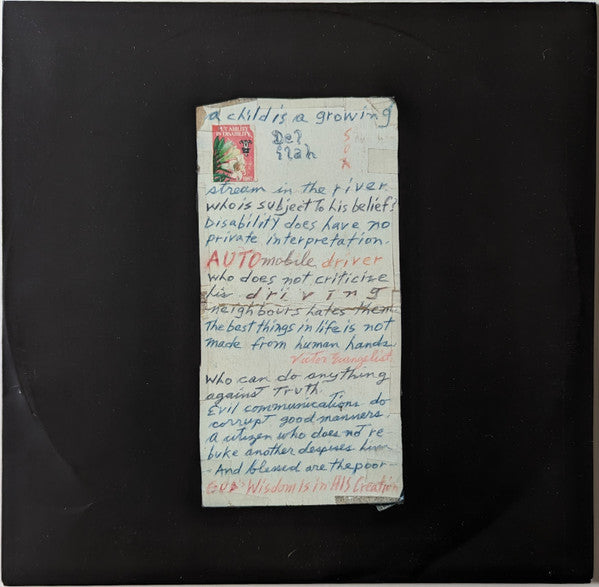 a child is a growing
ABILITY
IN DISABILITY
Del
Elah
stream in the river
who is subject to his belief?
Disability does have no
private interpretation.
AUTOmobile driver
who does not criticize
his driving
neighbours hates them
The best things in life is not
made from human hands.
Victor Evangelist
Who can do anything
against Truth.
Evil communications do
corrupt good manners.
A citizen who does not re-
buke another despises him
- And blessed are the poor -
GOD Wisdom is in HIS Creation